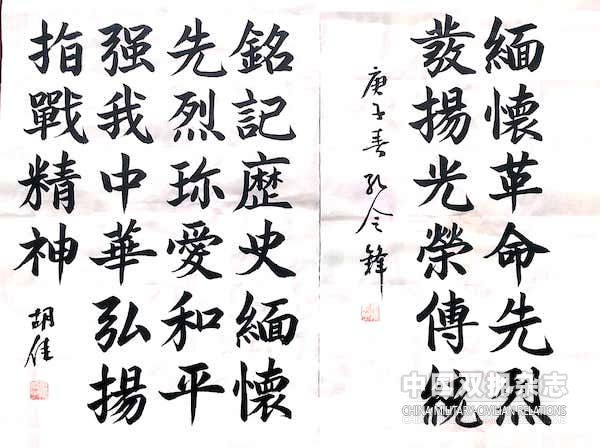 緬懷革命先烈
發揚光榮傳統
庚子春 孔令鋒
銘記歷史緬懷
先烈珎愛和平
强我中華弘揚
戰精神
胡佳
中国双拥杂志
CHINA MILITARY-CIVILIAN RELATIONS